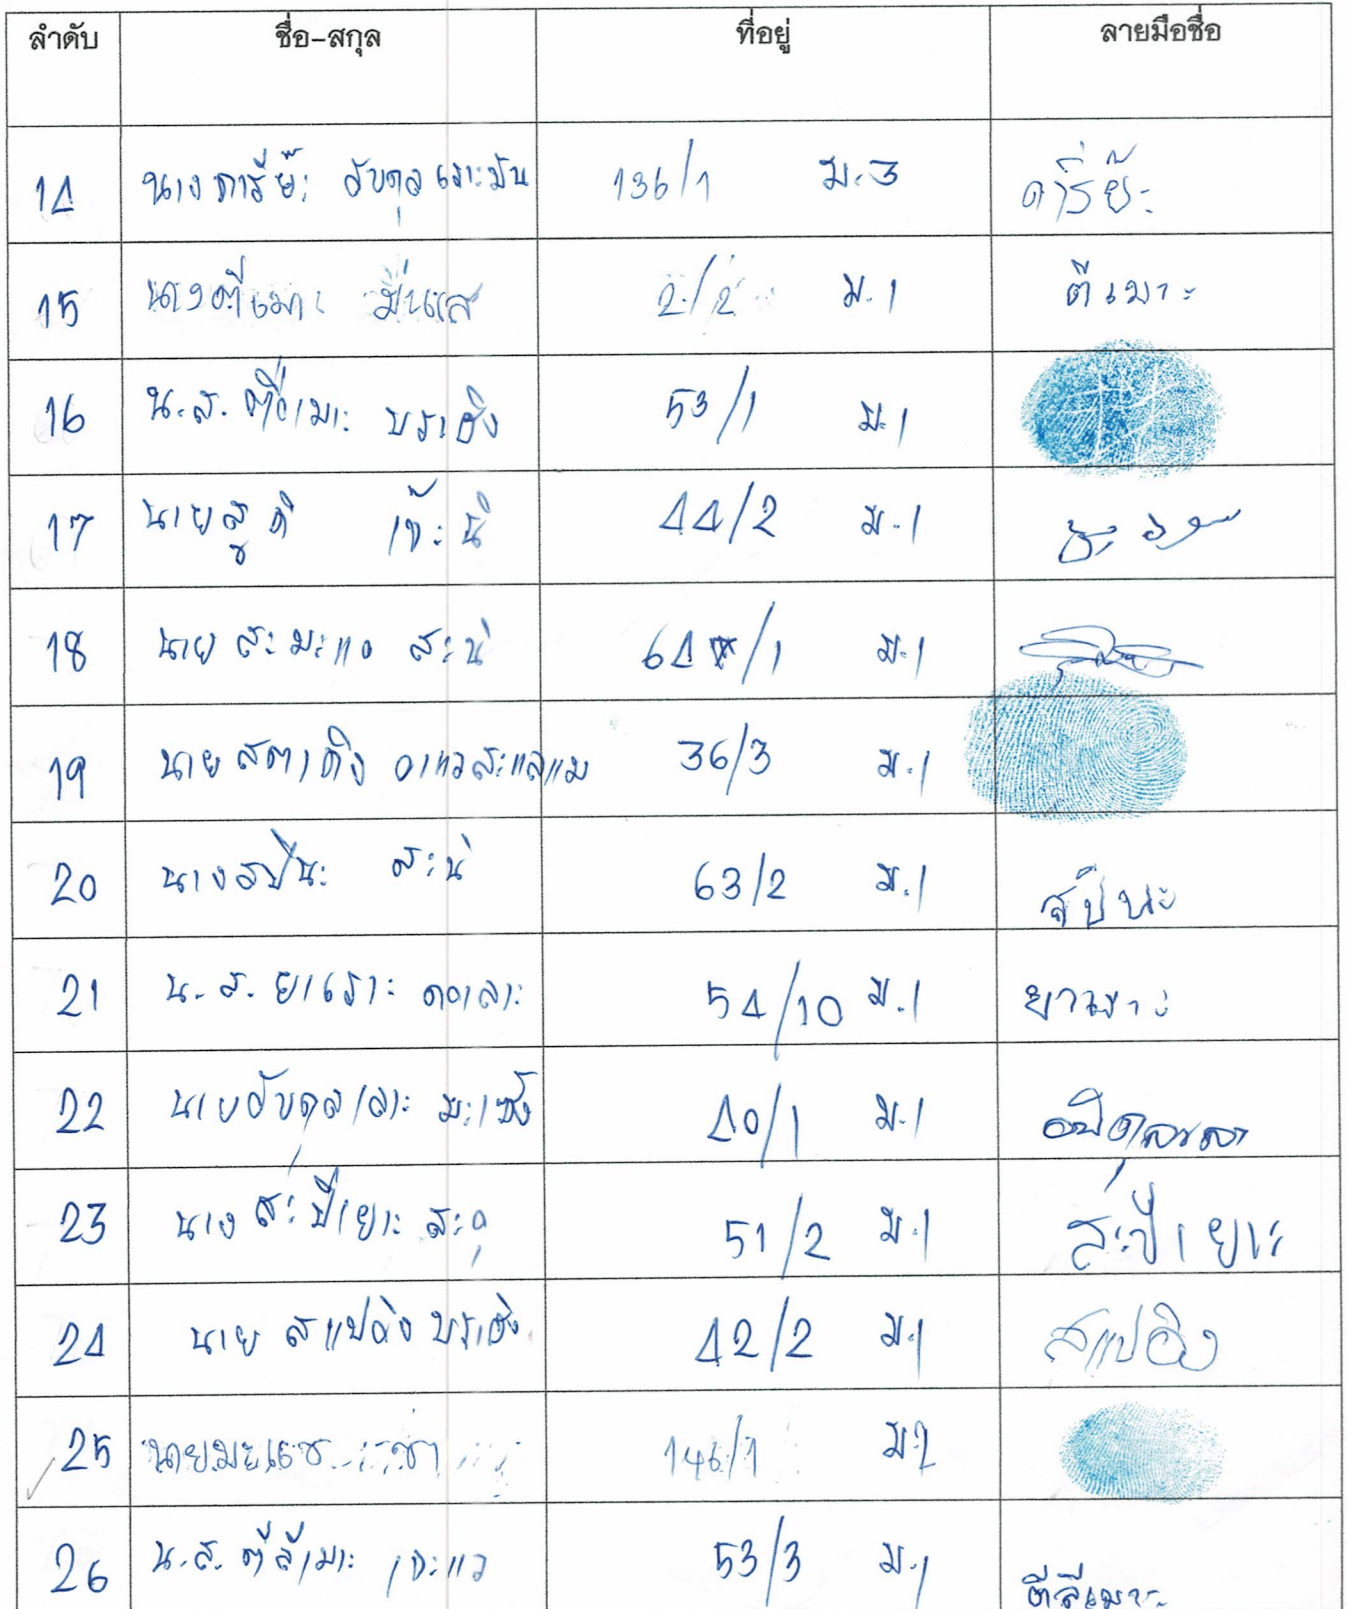 ลำดับ ชื่อ-สกุล ที่อยู่ ลายมือชื่อ
14 นางดารีย๊ะ อับดุลเราะมัน 136/1 ม.3 ดารีย๊ะ
15 นางตีเมาะ 2/2 ม.1 ตีเมาะ
16 น.ส. บราเฮง 53/1 ม.1
17 นายสูดี เจ๊ะนิ 44/2 ม.1
18 นาย สะมะแอ สะนิ 64/1 ม.1
19 นาย 36/3 ม.1
20 นางสปีนะ สะนิ 63/2 ม.1 สปีนะ
21 น.ส. ยาเราะ ดอเลาะ 54/10 ม.1 ยาเราะ
22 นายอับดุลเลาะ มะเซ็ง 40/1 ม.1
23 นาง สะปีเยาะ 51/2 ม.1 สะปีเยาะ
24 นาย สแปอิง บราเฮง 42/2 ม.1 สแปอิง
25 146/1 ม.2
26 น.ส. ตีลีเมาะ เจะแว 53/3 ม.1 ตีลีเมาะ